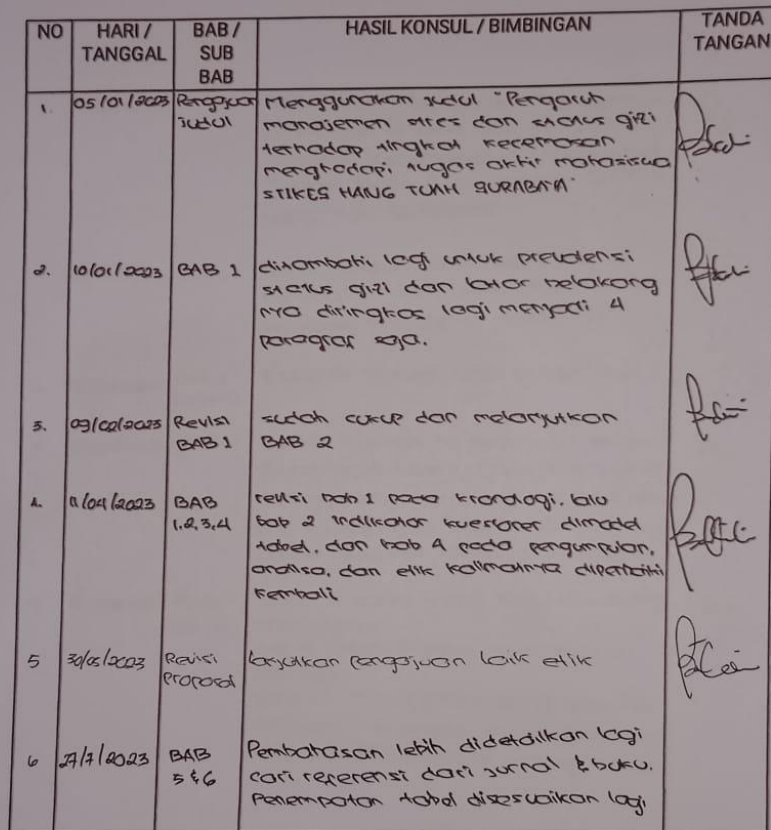 NO HARI / TANGGAL BAB / SUB BAB HASIL KONSUL / BIMBINGAN TANDA TANGAN
1. 05/01/2023 Pengajuan Judul Menggunakan judul "Pengaruh
manajemen stres dan status gizi
terhadap tingkat kecemasan
menghadapi tugas akhir mahasiswa
STIKES HANG TUAH SURABAYA"
2. 10/01/2023 BAB 1 ditambahi lagi untuk prevalensi
status gizi dan latar belakang
nya diringkas lagi menjadi 4
paragraf saja.
3. 09/02/2023 Revisi BAB 1 sudah cukup dan melanjutkan
BAB 2
4. 11/04/2023 BAB 1,2,3,4 revisi bab 1 pada kronologi. lalu
bab 2 indikator kuesioner dimodel
tabel. dan bab 4 pada pengumpulan,
analisa, dan etik kalimatnya diperbaiki
kembali
5 30/05/2023 Revisi Proposal lanjutkan pengajuan laik etik
6 27/7/2023 BAB 5 & 6 Pembahasan lebih didetailkan lagi
cari referensi dari jurnal & buku.
Penempatan tabel disesuaikan lagi